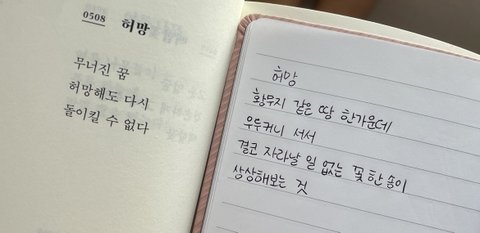 0508 허망
무너진 꿈
허망해도 다시
돌이킬 수 없다
허망
황무지 같은 땅 한가운데
우두커니 서서
결코 자라날 일 없는 꽃 한 송이
상상해보는 것